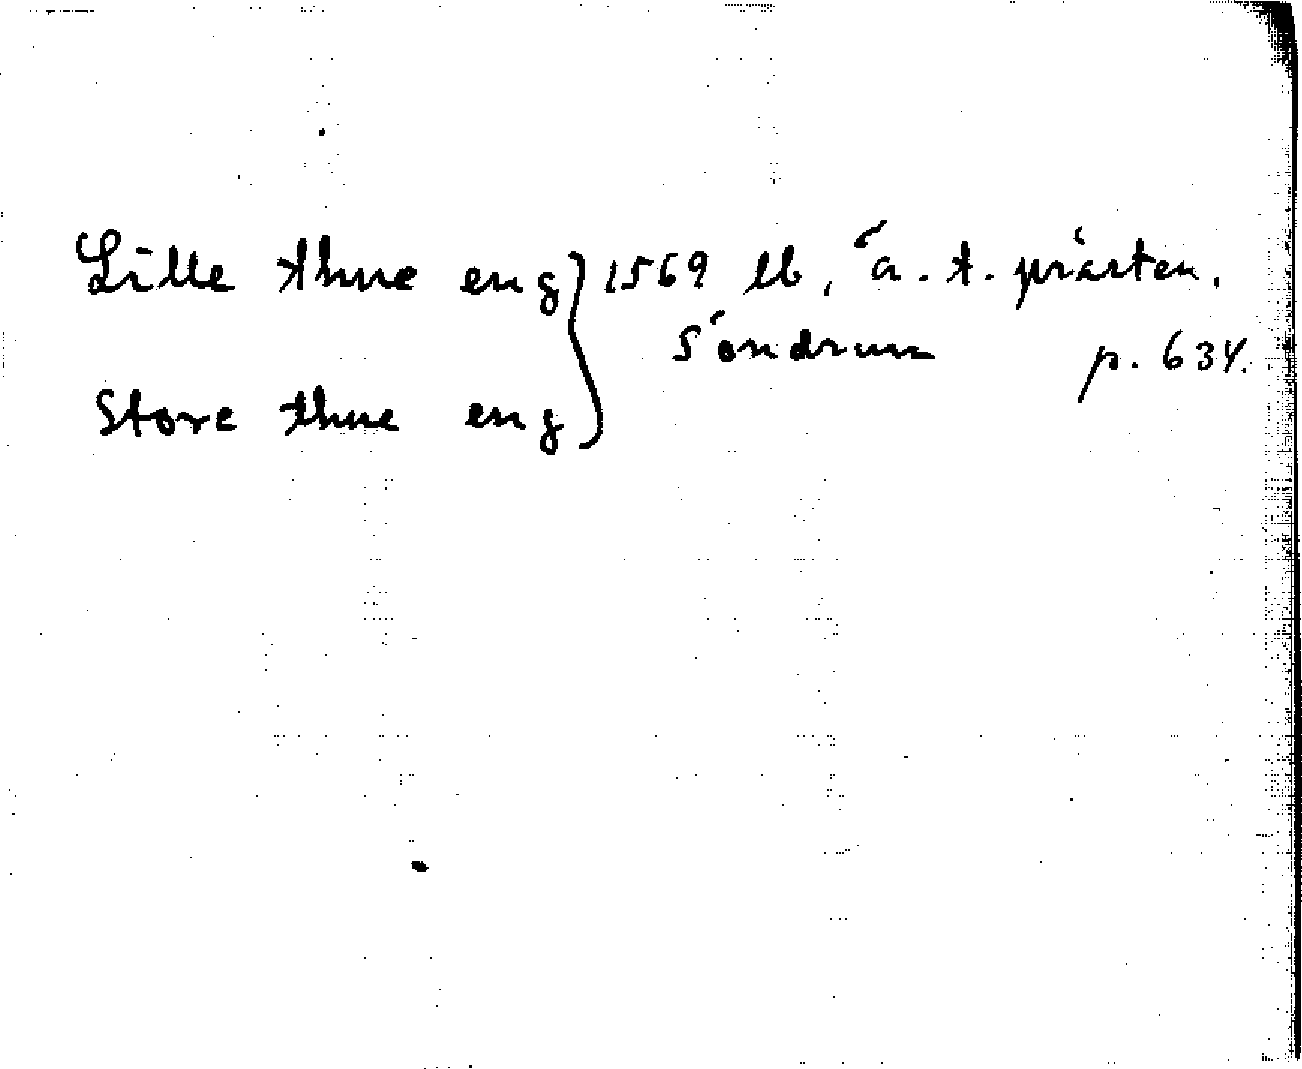 Lille thue eng } 1569 lb, ä. t. prästen.
Söndrum p. 634.
Store thue eng